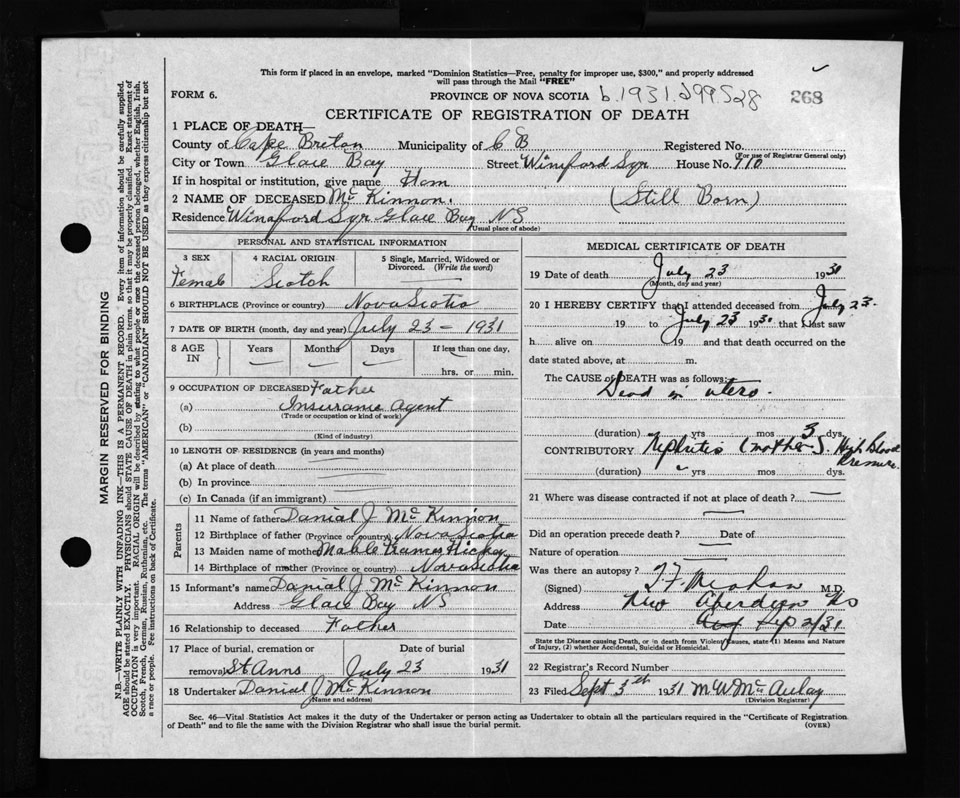 This form if placed in an envelope, marked "Dominion Statistics—Free, penalty for improper use, $300," and properly addressed
will pass through the Mail "FREE"
FORM 6. PROVINCE OF NOVA SCOTIA b.1931.299528 268
CERTIFICATE OF REGISTRATION OF DEATH
1 PLACE OF DEATH—
County of Cape Breton Municipality of C B Registered No.
(For use of Registrar General only)
City or Town Glace Bay Street House No. 110
If in hospital or institution, give name Hom
2 NAME OF DECEASED Mc Kinnon. (Still Born)
Residence Glace Bay NS
(Usual place of abode)
PERSONAL AND STATISTICAL INFORMATION
3 SEX 4 RACIAL ORIGIN 5 Single, Married, Widowed or
Divorced. (Write the word)
Female Scotch
6 BIRTHPLACE (Province or country) Nova Scotia
7 DATE OF BIRTH (month, day and year) July 23 – 1931
8 AGE IN Years Months Days If less than one day,
hrs. or min.
9 OCCUPATION OF DECEASED Father
(a) Insurance Agent
(Trade or occupation or kind of work)
(b)
(Kind of industry)
10 LENGTH OF RESIDENCE (in years and months)
(a) At place of death
(b) In province
(c) In Canada (if an immigrant)
Parents
11 Name of father Danial J Mc Kinnon
12 Birthplace of father (Province or country) Nova Scotia
13 Maiden name of mother Mable Hickey
14 Birthplace of mother (Province or country) Nova Scotia
15 Informant's name Danial J Mc Kinnon
Address Glace Bay NS
16 Relationship to deceased Father
17 Place of burial, cremation or Date of burial
removal St Anns July 23 1931
18 Undertaker Danial J Mc Kinnon
(Name and address)
MEDICAL CERTIFICATE OF DEATH
19 Date of death July 23 1931
(Month, day and year)
20 I HEREBY CERTIFY that I attended deceased from July 23
19 to July 23 1931 that I last saw
h alive on 19 and that death occurred on the
date stated above, at m.
The CAUSE of DEATH was as follows:
Dead in utero.
(duration) yrs mos 3 dys.
CONTRIBUTORY Nephritis (mother). High Blood
Pressure.
(duration) yrs mos. dys.
21 Where was disease contracted if not at place of death?
Did an operation precede death? Date of
Nature of operation
Was there an autopsy?
(Signed) M.D.
Address New Aberdeen NS
Date Aug Sep 2/31
State the Disease causing Death, or in death from Violent Causes, state (1) Means and Nature
of Injury, (2) whether Accidental, Suicidal or Homicidal.
22 Registrar's Record Number
23 Filed Sept 3rd 1931 M W McAulay
(Division Registrar)
Sec. 46—Vital Statistics Act makes it the duty of the Undertaker or person acting as Undertaker to obtain all the particulars required in the "Certificate of Registration
of Death" and to file the same with the Division Registrar who shall issue the burial permit. (OVER)
MARGIN RESERVED FOR BINDING
N.B.—WRITE PLAINLY WITH UNFADING INK—THIS IS A PERMANENT RECORD. Every item of information should be carefully supplied.
AGE should be stated EXACTLY. PHYSICIANS should STATE CAUSE OF DEATH in plain terms, so that it may be properly classified. Exact statement of
OCCUPATION is very important. RACIAL ORIGIN will be described by stating to what people or race the deceased person belonged, whether English, Irish,
Scotch, French, German, Russian, Ruthenian, etc. The terms "AMERICAN" or "CANADIAN" SHOULD NOT BE USED as they express citizenship but not
a race or people. Fee instructions on back of Certificate.